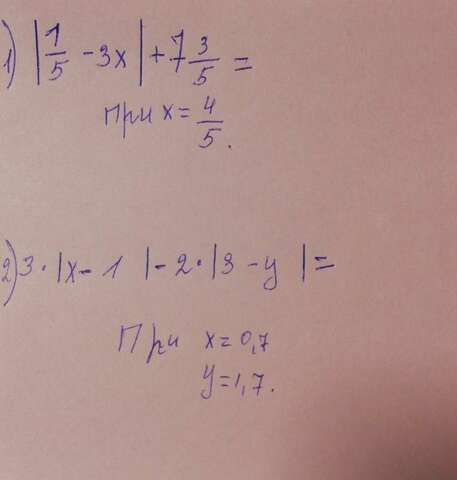 1) |1/5 - 3x| + 7 3/5 =
при x = 4/5.
2) 3 · |x - 1| - 2 · |3 - y| =
При x = 0,7
y = 1,7.